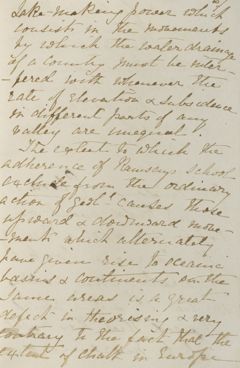 Lake-making power which
consists in the movements
by which the water drainage
of a country must be inter-
-fered with whenever the
rate of elevation & subsidence
in different parts of any
valley are unequal.
The extent to which the
adherence of Ramsay's school
exclude from the ordinary
action of geol^l causes those
upward & downward move-
-ments which alternately
have given rise to oceanic
basins & continents on the
same areas is a great
defect in theorising & very
contrary to the fact that the
extent of chalk in Europe